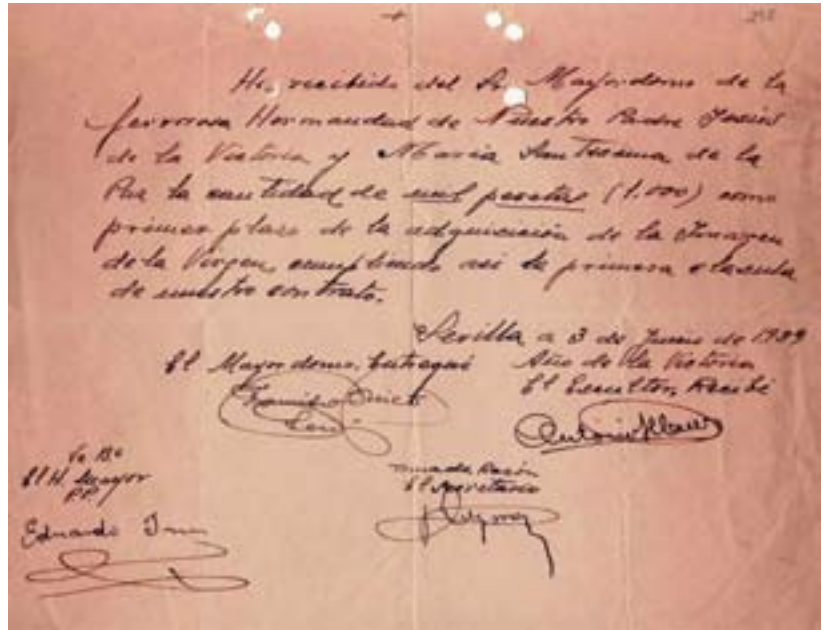 He recibido del Sr. Mayordomo de la
fervorosa Hermandad de Nuestro Padre Jesús
de la Victoria y María Santísima de la
Paz la cantidad de mil pesetas (1.000) como
primer plazo de la adquisición de la Imagen
de la Virgen, cumpliendo así la primera clausula
de nuestro contrato.
Sevilla a 3 de Junio de 1939
Año de la Victoria
El Mayordomo, Entregué
El Escultor, Recibí
Antonio
Vº Bº
El H. Mayor
P.P.
Tomada Razón
El Secretario
Eduardo